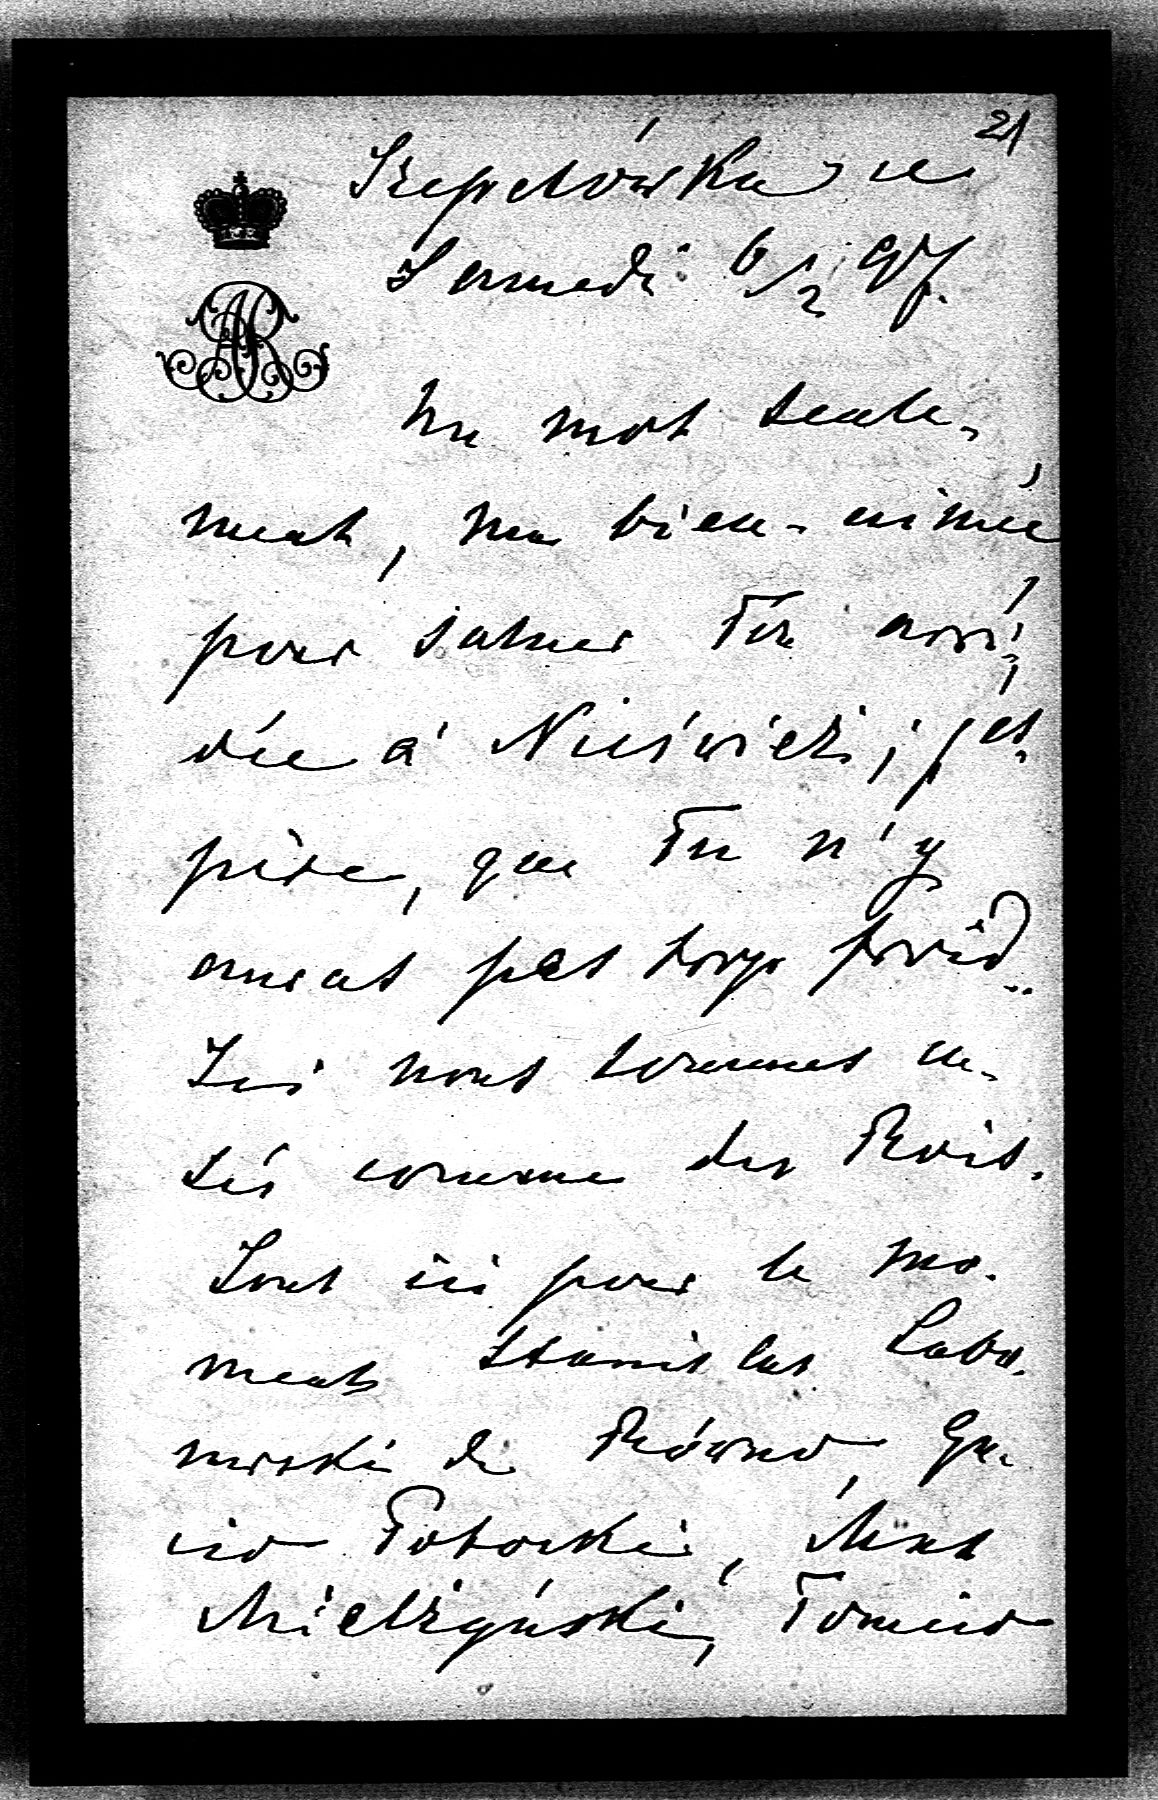 21
Szepetówka, ce
Samedi 6/2 97.
Un mot seule-
ment, ma bien-aimée
pour saluer Ton arri-
vée à Nieśwież; j'es-
père, que Tu n'y
auras pas trop froid..
Ici nous sommes as-
sés comme des Rois.
Sont ici pour le mo-
ment Stanislas Lubo-
mirski de Równo, Gu-
cio Potocki, Max
Mielżyński, Tomcio